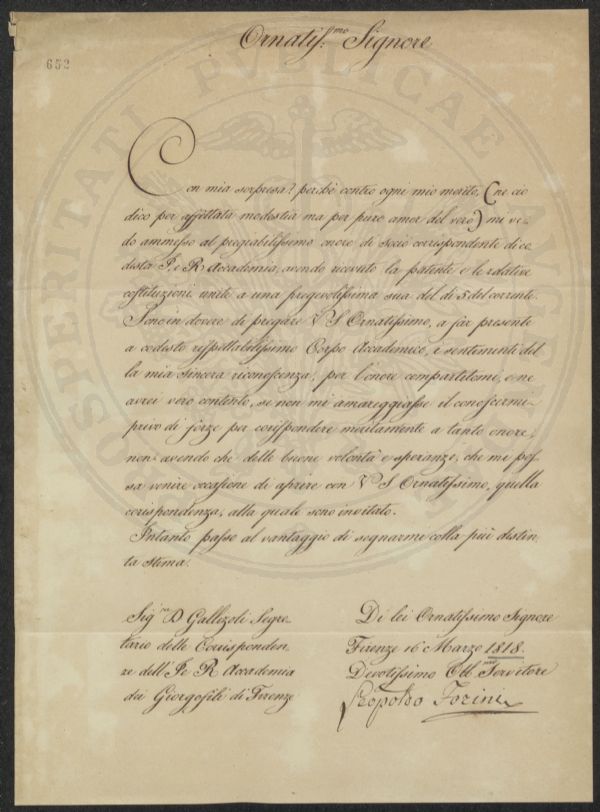 Ornatiss.mo Signore
652
Con mia sorpresa? perchè contro ogni mio merito, (ne ciò
dico per affettata modestia ma per puro amor del vero) mi ve-
do ammesso al pregiabilissimo onore di socio corrispondente di co-
desta I. e R. Accademia, avendo ricevuto la patente e le relative
costituzioni unite a una pregevolissima sua del dì 5 del corrente.
Sono in dovere di pregare V S Ornatissimo, a far presente
a codesto rispettabilissimo Corpo Accademico, i sentimenti del
la mia sincera riconoscenza, per l'onore compartitomi, e ne
avrei vero contento, se non mi amareggiasse il conoscermi
privo di forze per corrispondere meritamente a tanto onore,
non avendo che delle buone volontà e speranze, che mi pos
sa venire occasione di aprire con V S Ornatissimo, quella
corispondenza, alla quale sono invitato.
Intanto passo al vantaggio di segnarmi colla più distin
ta stima.
Sig.re D. Gallizoli Segre
tario delle Corrisponden
ze dell I. e R. Accademia
dei Giorgofili di Firenze
Di lei Ornatissimo Signore
Firenze 16 Marzo 1818.
Devotissimo Obb.mo Servitore
Leopoldo Forini
OSPERITATI PVBLICAE AVGE